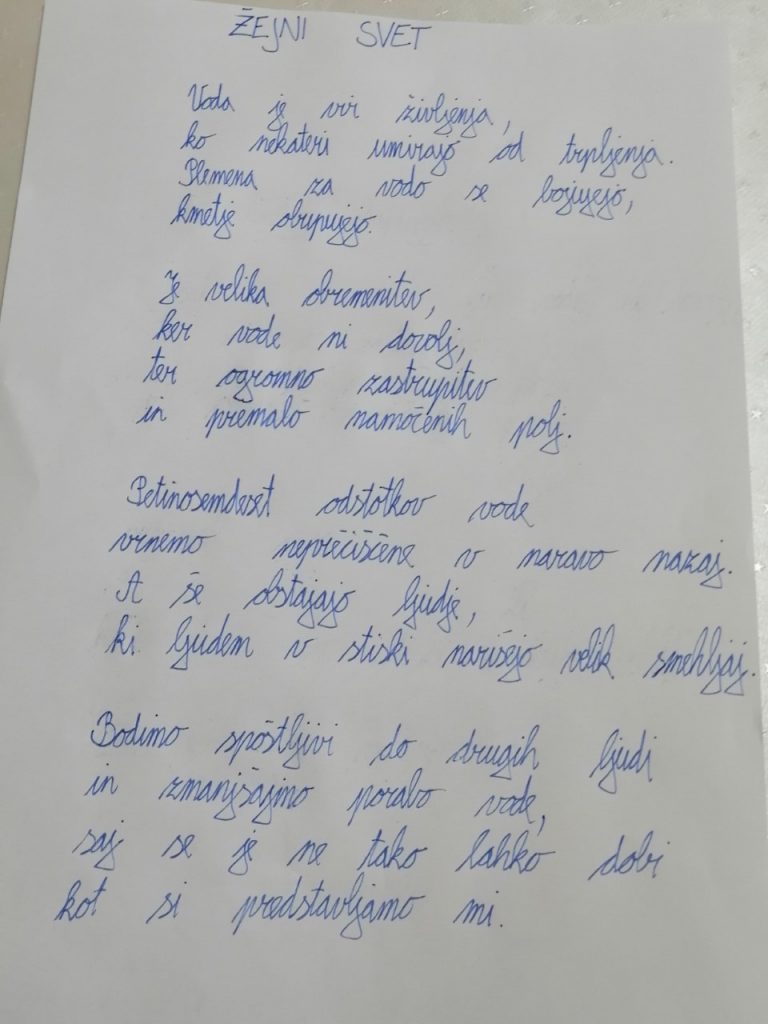 ŽEJNI SVET
Voda je vir življenja,
ko nekateri umirajo od trpljenja.
Plemena za vodo se bojujejo,
kmetje obupujejo.
Je velika obremenitev,
ker vode ni dovolj,
ter ogromno zastrupitev
in premalo namočenih polj.
Petinosemdeset odstotkov vode
vrnemo neprečiščene v naravo nazaj.
A še obstajajo ljudje,
ki ljudem v stiski narišejo velik smehljaj.
Bodimo spoštljivi do drugih ljudi
in zmanjšajmo porabo vode,
saj se je ne tako lahko dobi
kot si predstavljamo mi.